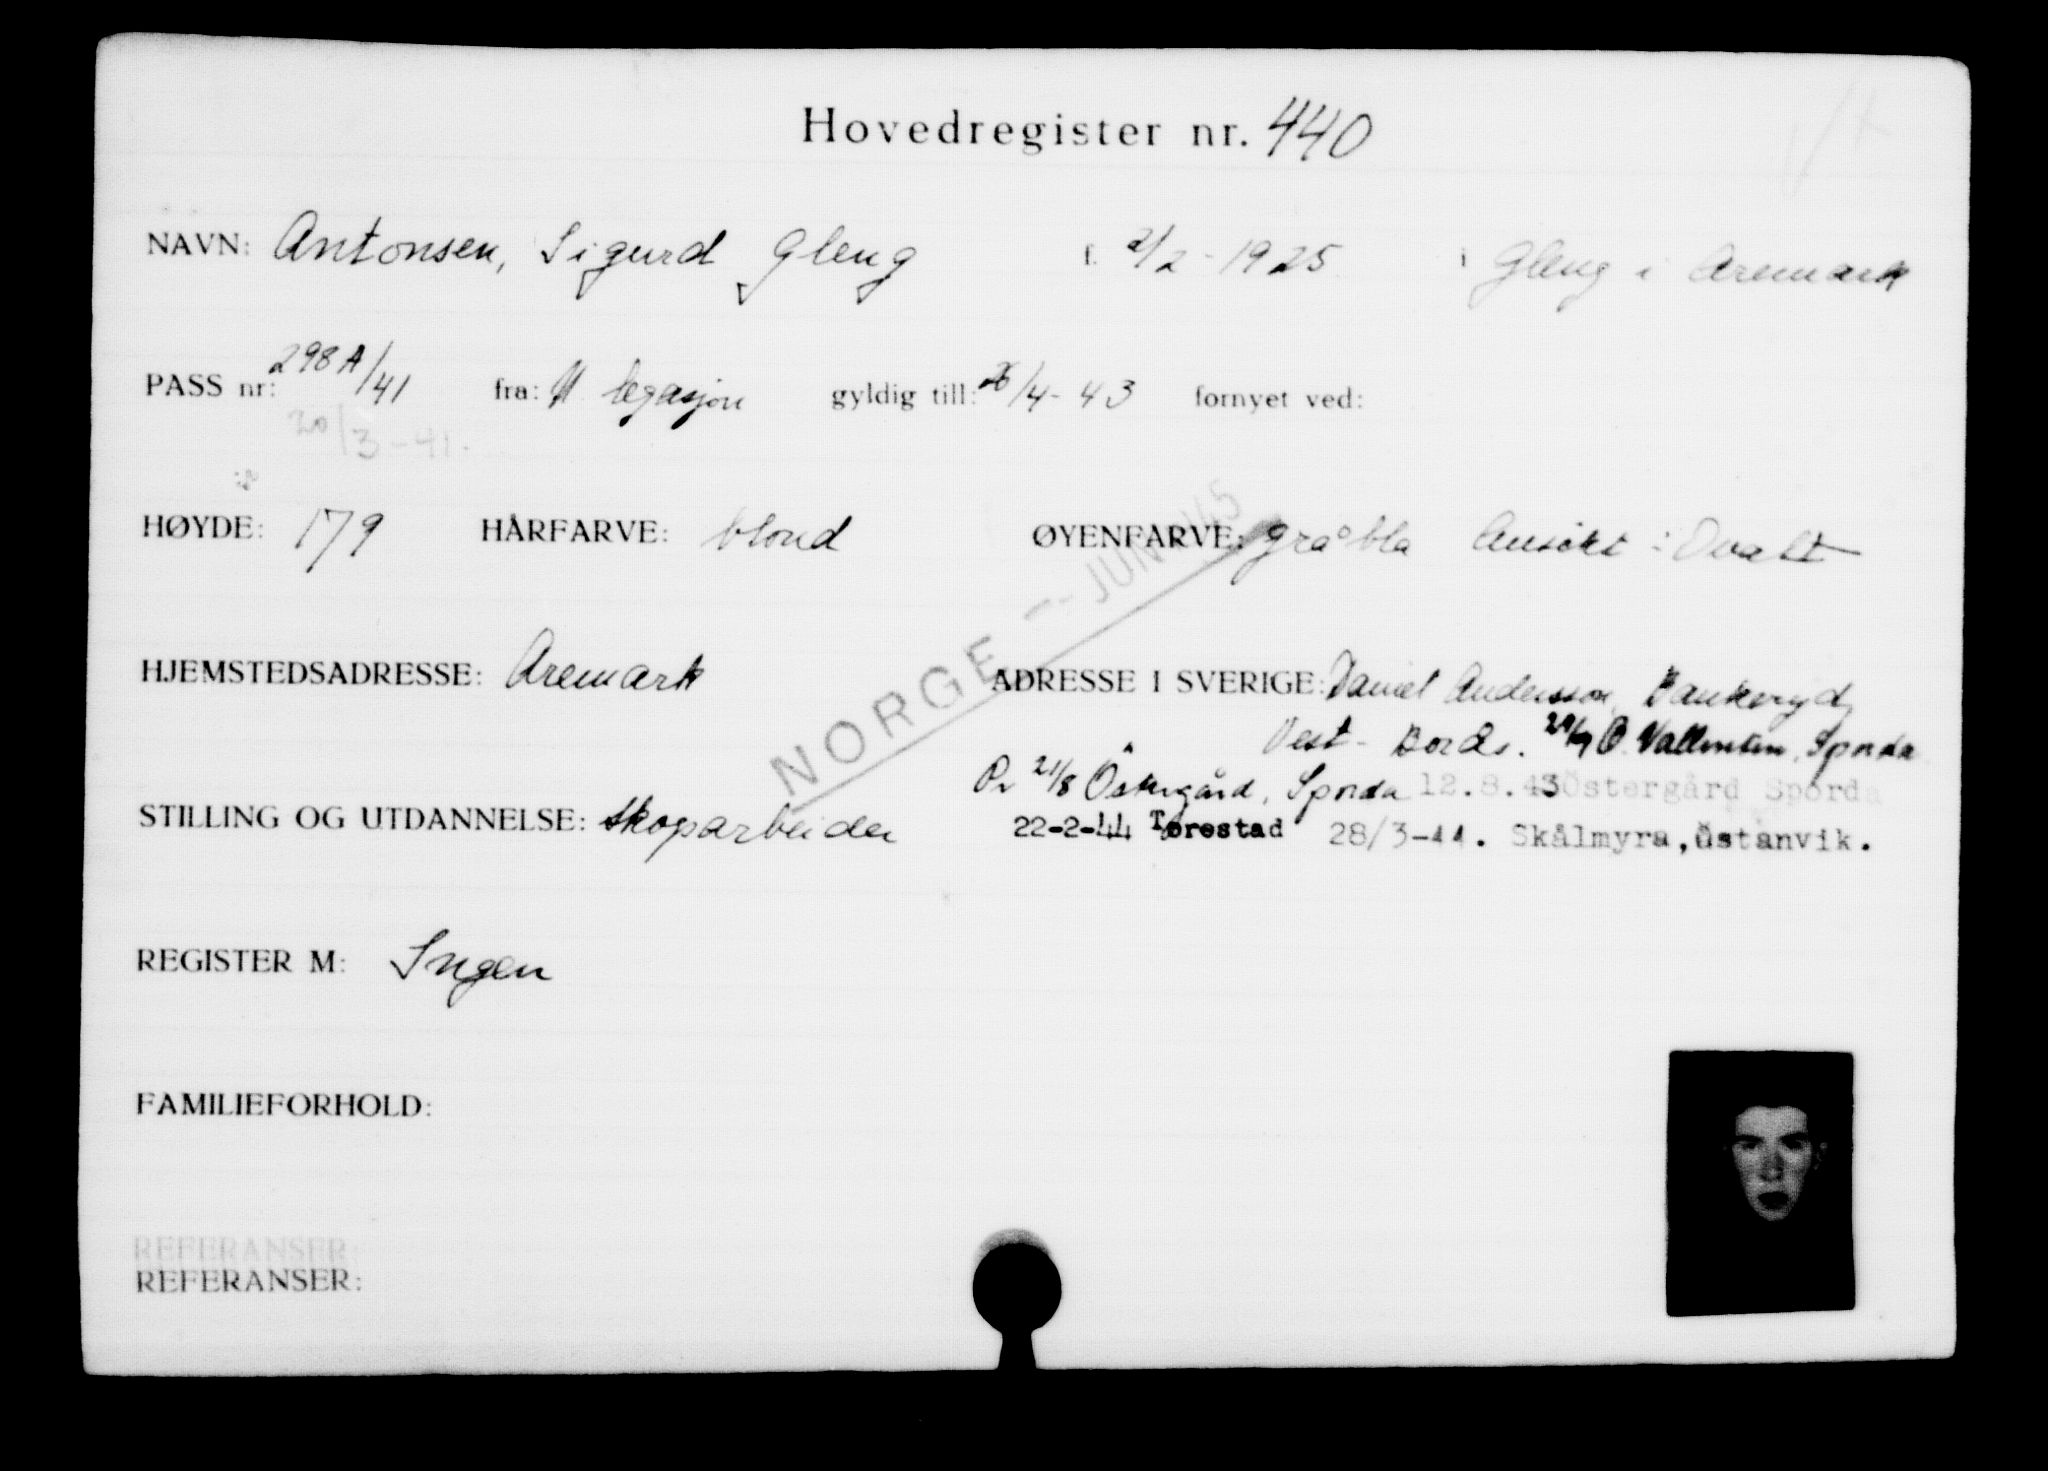 Hovedregister nr. 440
NAVN: Antonsen, Sigurd Gleng f. 2/2-1925 i Gleng i Aremark
PASS nr: 298A/41 fra: legasjon gyldig till: /4-43 fornyet ved:
20/3-41.
HØYDE: 179 HÅRFARVE: blond ØYENFARVE: gråblå Ansikt: Ovalt
NORGE -- JUNI 45
HJEMSTEDSADRESSE: Aremark ADRESSE I SVERIGE: Daniel Andersson, Bankeryd
Vest- Bords. O. Vallmtim, Sporda
Pr 21/8 Östergård, Sporda 12.8.43 Östergård Sporda
STILLING OG UTDANNELSE: skoparbeider 22-2-44 Torestad 28/3-44. Skålmyra, Östanvik.
REGISTER M: Ingen
FAMILIEFORHOLD:
REFERANSER:
REFERANSER: